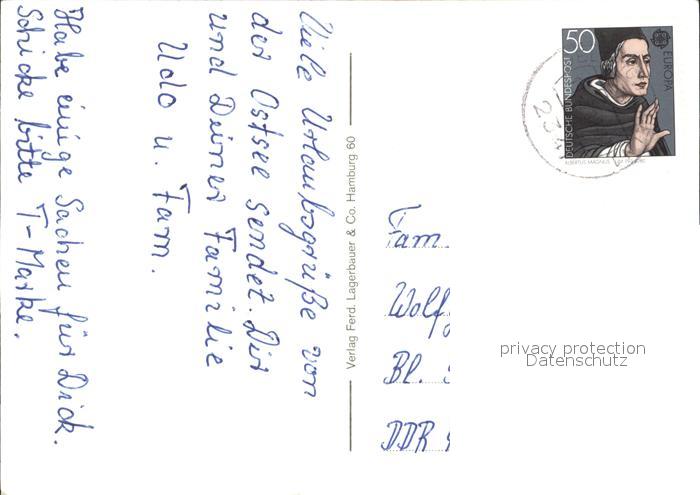 Viele Urlaubsgrüße von
der Ostsee sendet Dir
und Deiner Familie
Udo u. Fam.
Habe einige Sachen für Dich.
Schicke bitte T-Marke.
Verlag Ferd. Lagerbauer & Co. Hamburg 60
50
EUROPA
DEUTSCHE BUNDESPOST
ALBERTUS MAGNUS
Fam.
Wolf
Bl.
DDR
privacy protection
Datenschutz